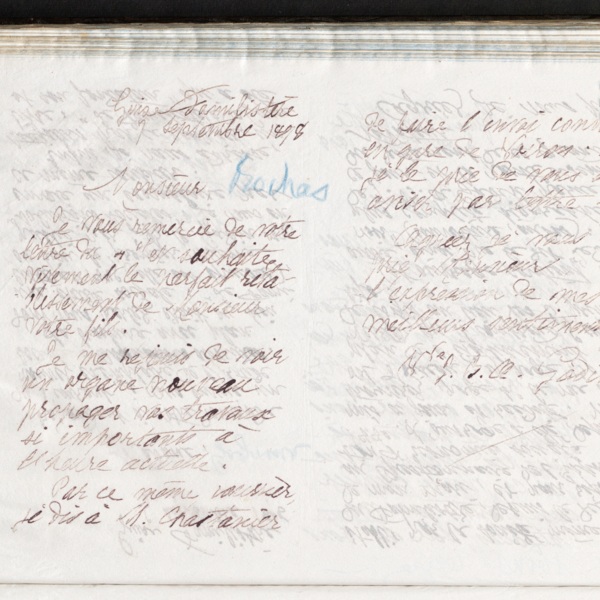 Guise Familistère
9 septembre 1898
Rochas
Monsieur,
Je vous remercie de votre
lettre du 4 et souhaite
vivement le parfait réta
blissement de Monsieur
votre fils.
Je me réjouis de voir
un organe nouveau
propager vos travaux
si importants à
l'heure actuelle.
Par ce même courrier
je dis à M. Chastanier
de faire l'envoi
en gare de Voiron.
je le prie de vous
par
Agréez je vous
prie Monsieur
l'expression de mes
meilleurs sentiments
Vve J. B. A. Godin